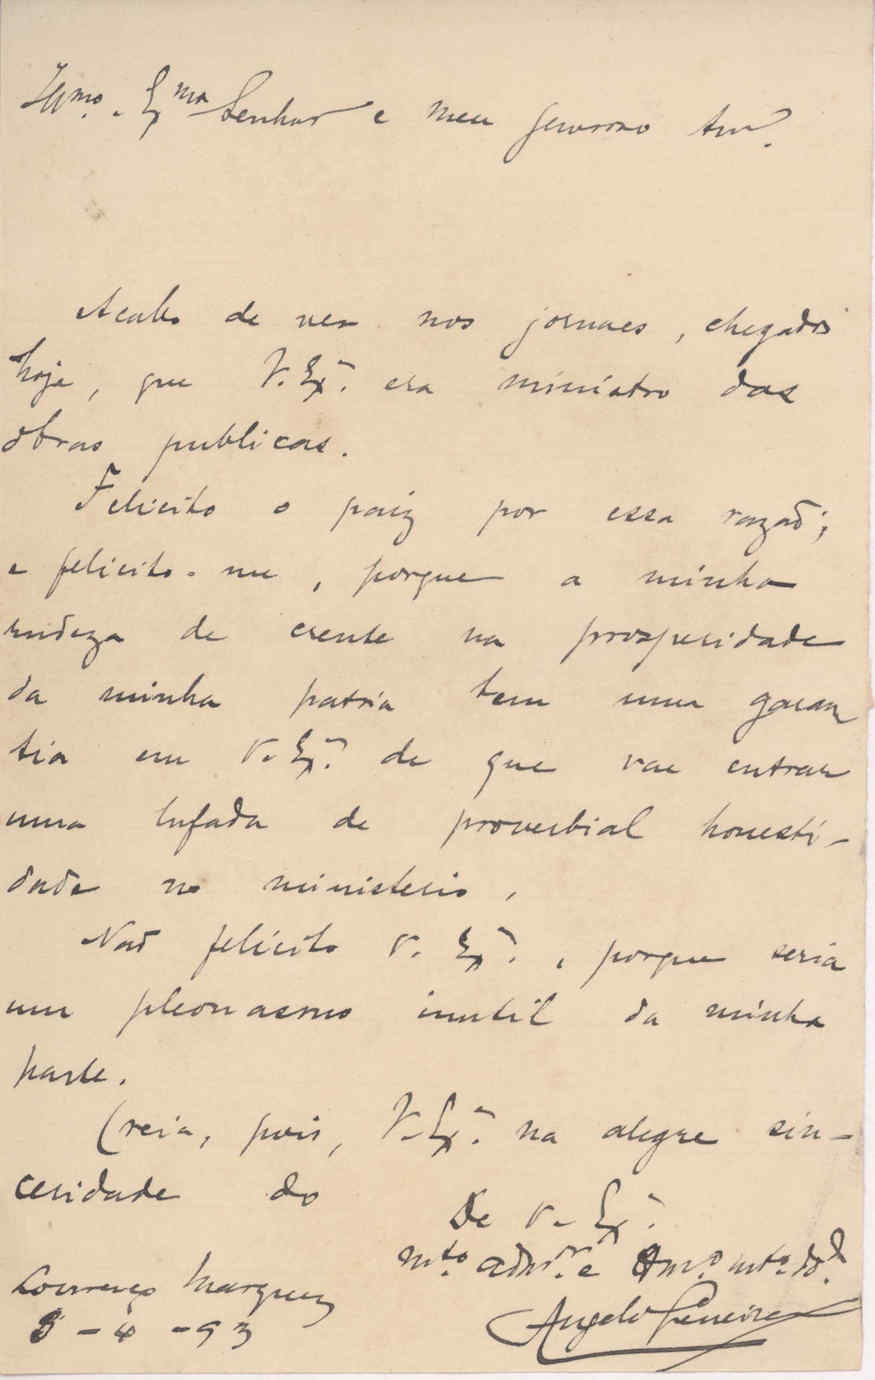 Illmo. Exmo Senhor e meu generoso Amo.
Acabo de ver nos jornaes, chegados
hoje, que V. Exª. era ministro das
obras publicas.
Felicito o paiz por essa razaõ;
e felicito-me, porque a minha
rudeza de crente na prosperidade
da minha patria tem uma garan
tia em V. Exª. de que vae entrar
uma lufada de proverbial honesti-
dade no ministerio.
Naõ felicito V. Exª., porque seria
um pleonasmo inutil da minha
parte.
Creia, pois, V. Exª. na alegre sin-
ceridade do
De V. Exª.
mto. admor. e Amo. mto. ddo.
Lourenço Marques
5-4-93
Angelo Ferreira